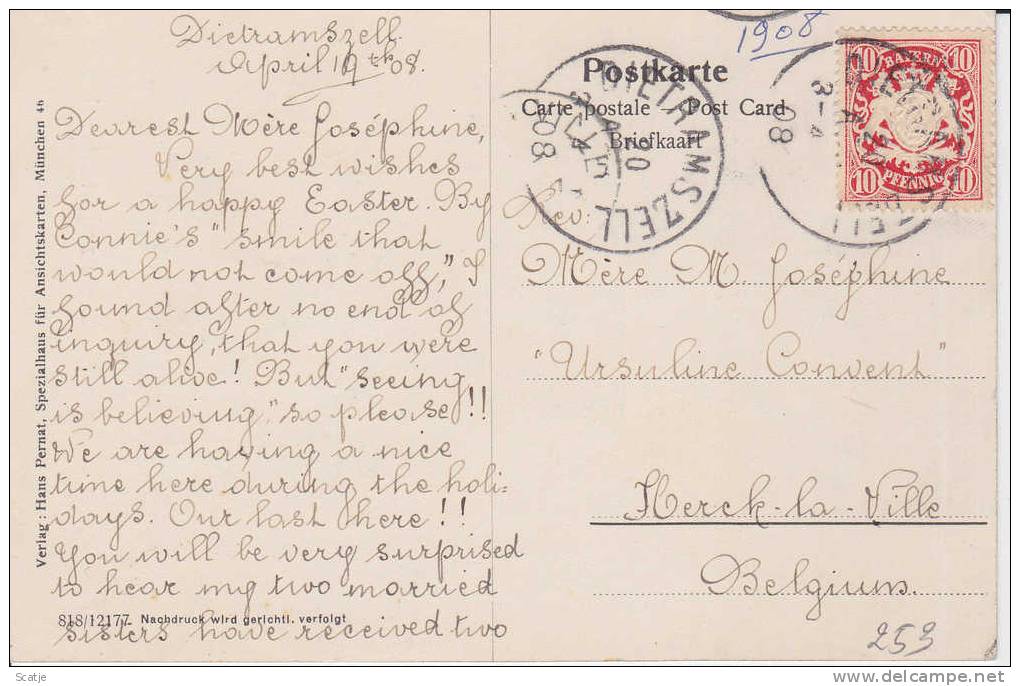 Dietramszell.
April 19th 08.
Dearest Mère Joséphine,
Very best wishes
for a happy Easter. By
Connie's "smile that
would not come off," I
found after no end of
inquiry, that you were
still alive! But "seeing
is believing," so please!!
We are having a nice
time here during the holi-
days. Our last here!!
You will be very surprised
to hear my two married
sisters have received two
818/12177 Nachdruck wird gerichtl. verfolgt
Verlag: Hans Pernat, Spezialhaus für Ansichtskarten, München 46
1908
Postkarte
Carte postale Post Card
Briefkaart
DIETRAMSZELL
08
3-4
08
10 10
BAYERN
10 PFENNIG 10
Rev:
Mère M. Joséphine
"Ursuline Convent"
Herck-la-Ville
Belgium.
253
Scatje
www.delcampe.net